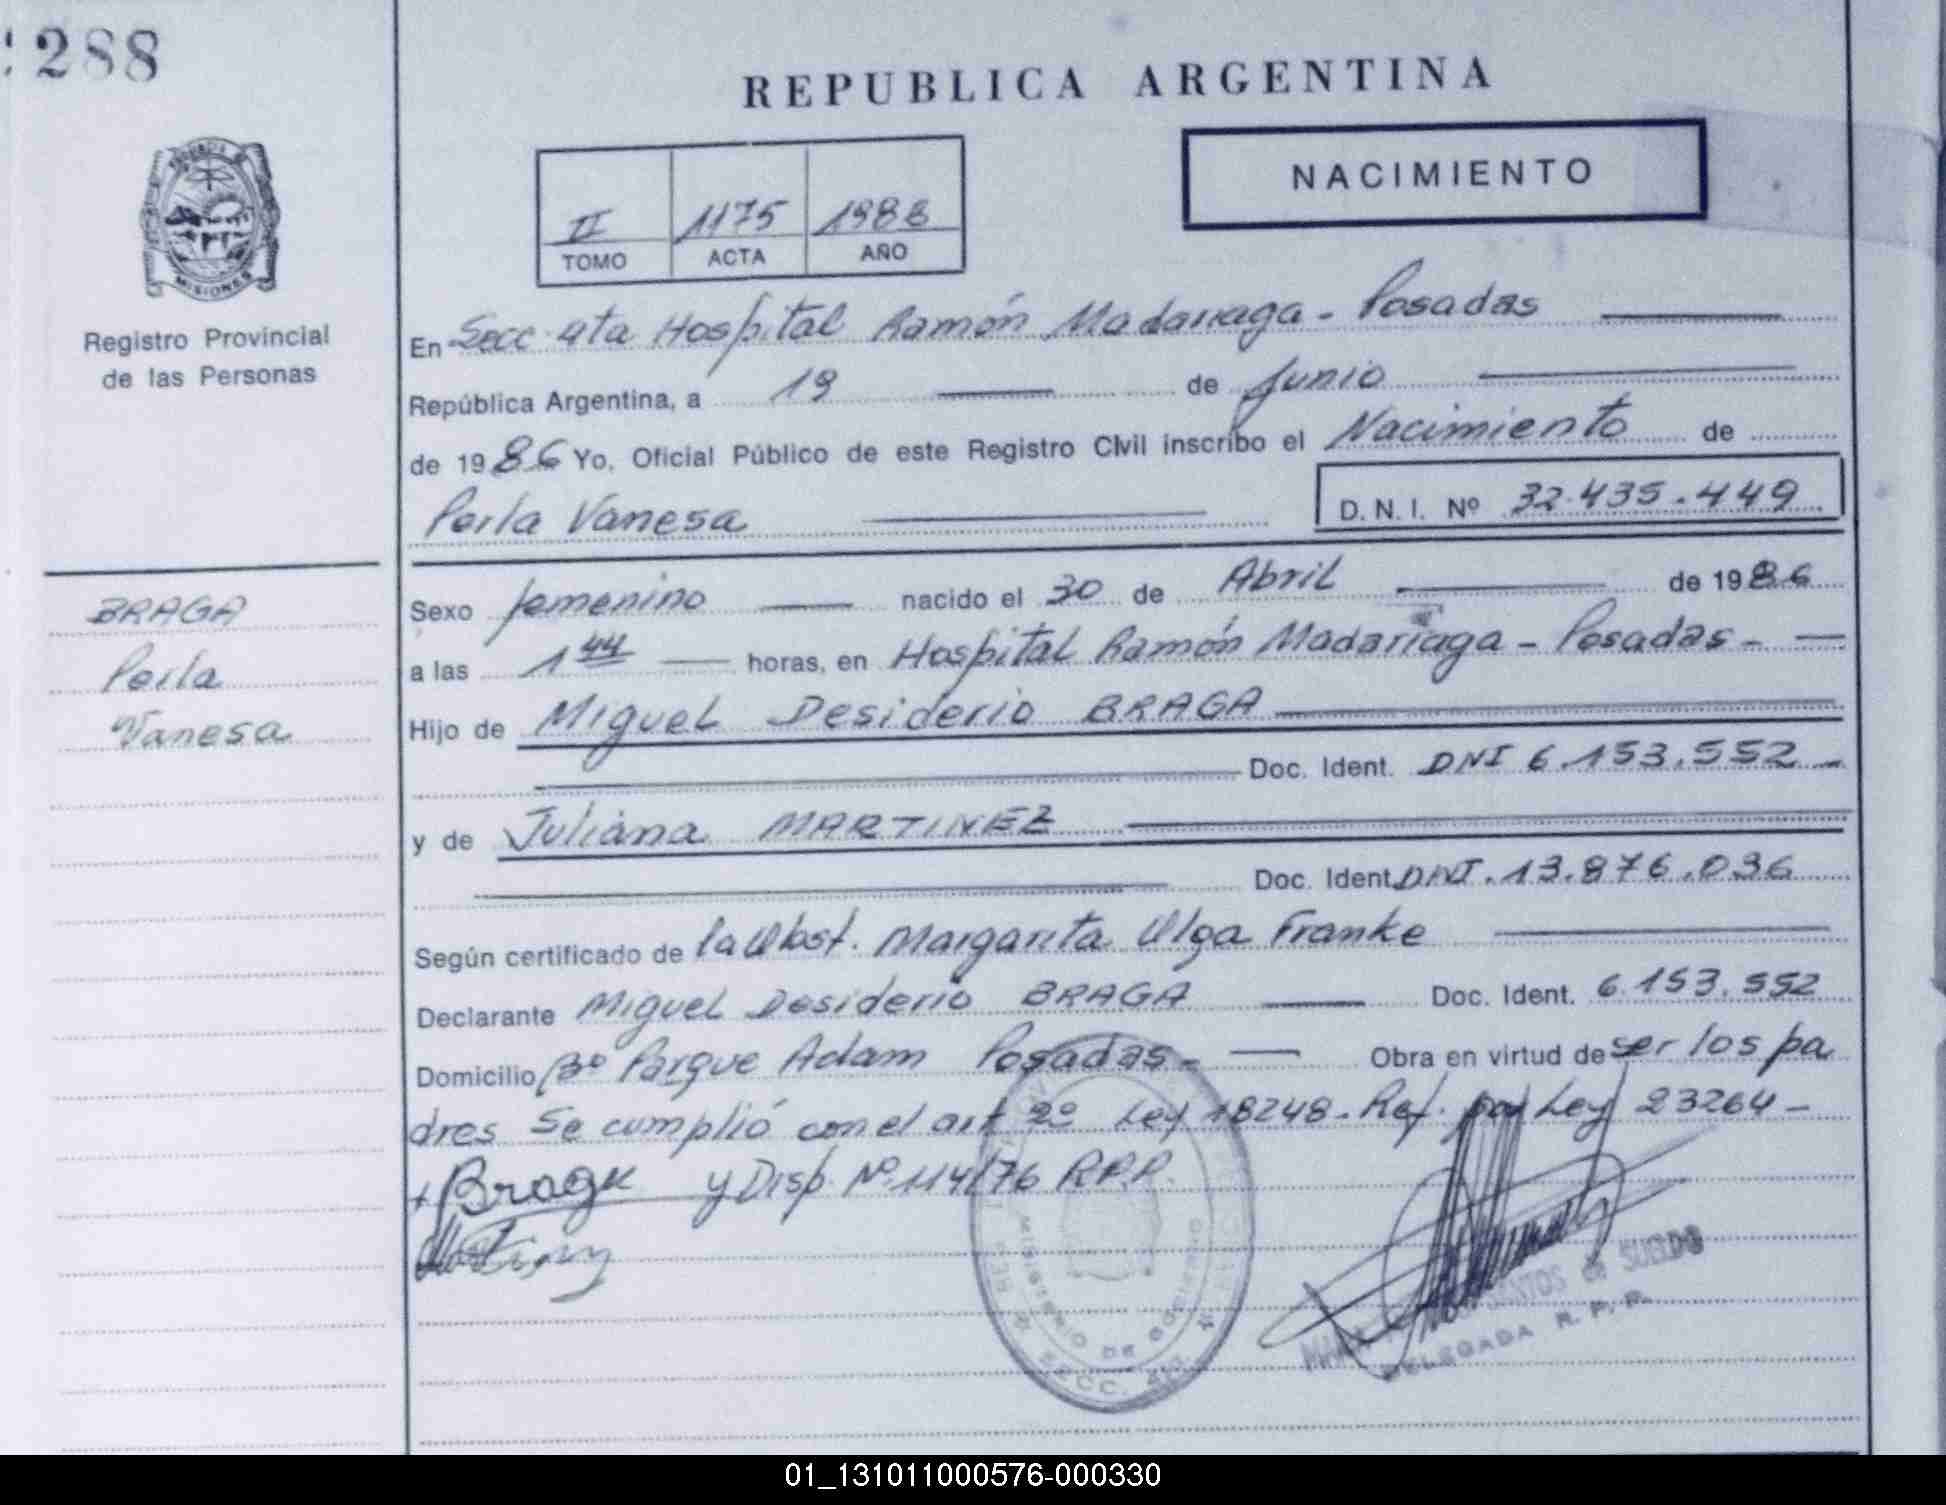 288
REPUBLICA ARGENTINA
NACIMIENTO
II 1175 1986
TOMO ACTA AÑO
MISIONES
Registro Provincial
de las Personas
En Secc 4ta Hospital Ramón Madariaga - Posadas
República Argentina, a 19 de Junio
de 1986 Yo, Oficial Público de este Registro Civil inscribo el Nacimiento de
Perla Vanesa D.N.I. Nº 32.435.449
BRAGA
Perla
Vanesa
Sexo femenino nacido el 30 de Abril de 1986
a las 1 44 horas, en Hospital Ramón Madariaga - Posadas -
Hijo de Miguel Desiderio BRAGA
Doc. Ident. DNI 6.153.552
y de Juliana MARTINEZ
Doc. Ident. DNI. 13.876.036
Según certificado de la Obst. Margarita Olga Franke
Declarante Miguel Desiderio BRAGA Doc. Ident. 6.153.552
Domicilio Bº Parque Adam Posadas - Obra en virtud de ser los pa
dres Se cumplió con el art 2º Ley 18248 - Ref. por Ley 23264 -
y Disp. Nº 114/76 R.P.P.
MINISTERIO DE GOBIERNO
SECC.
de SUELDO
DELEGADA R. P. P.
01_131011000576-000330